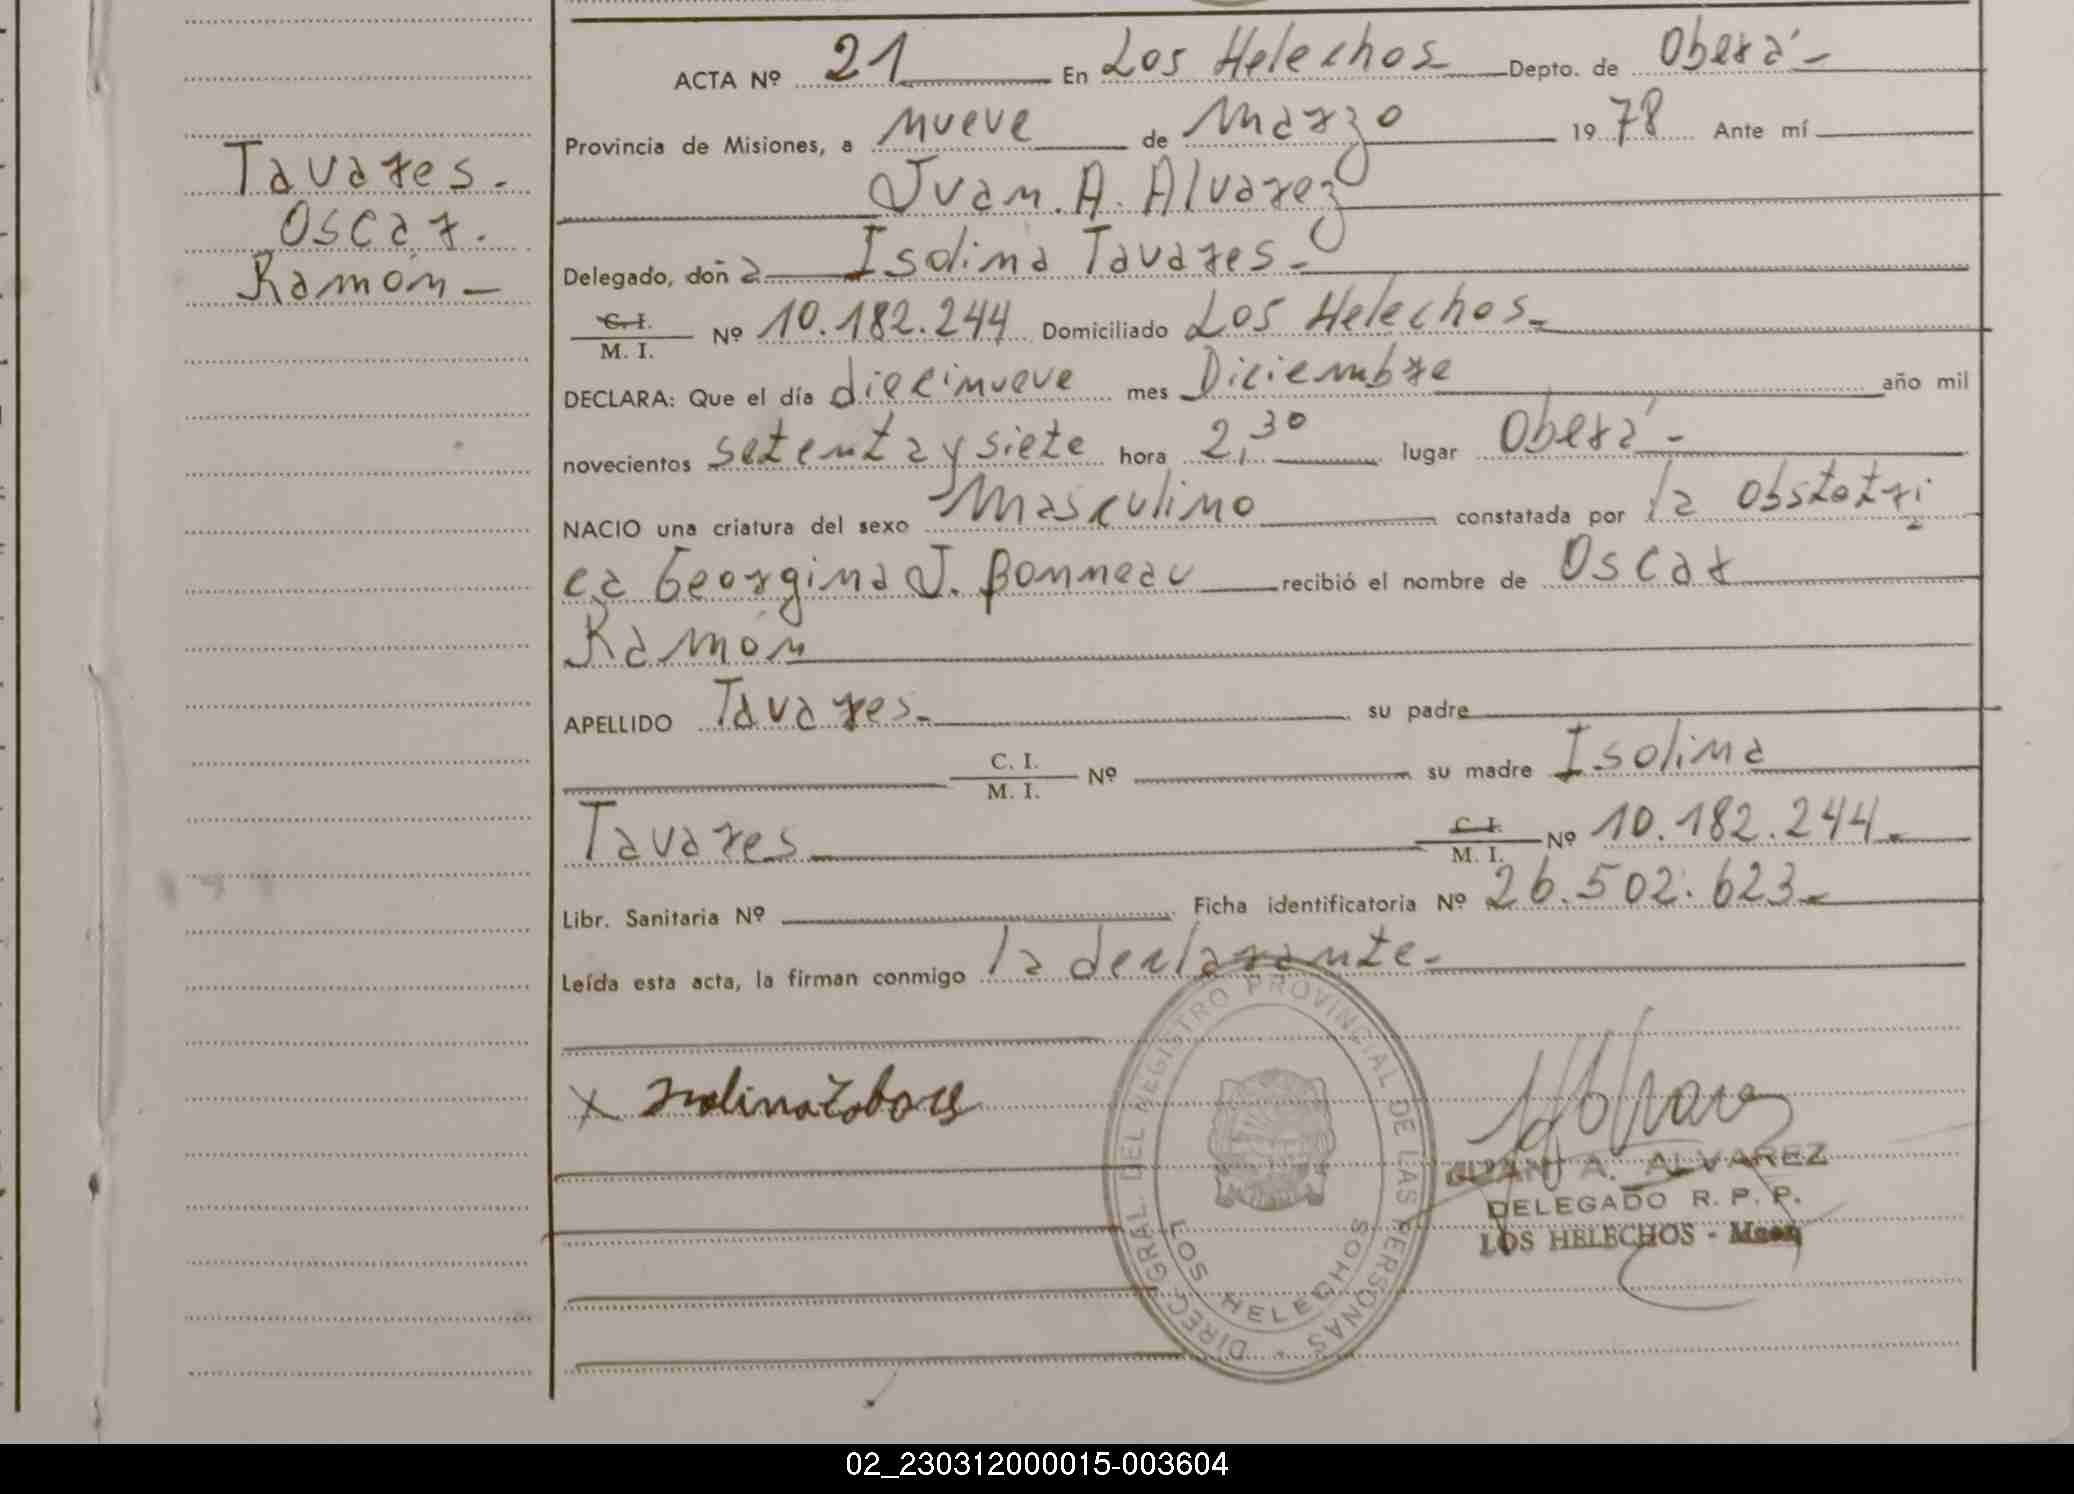 Tavares.
Oscar.
Ramón
ACTA Nº 21 En Los Helechos Depto. de Oberá
Provincia de Misiones, a nueve de Marzo 1978 Ante mí
Juan. A. Alvarez
Delegado, doña Isolina Tavares.
C. I. / M. I. Nº 10.182.244 Domiciliado Los Helechos.
DECLARA: Que el día diecinueve mes Diciembre año mil
novecientos setenta y siete hora 2,30 lugar Oberá
NACIO una criatura del sexo Masculino constatada por la obstetri
ca Georgina J. Bonneau recibió el nombre de Oscar
Ramón
APELLIDO Tavares. su padre
C. I. / M. I. Nº su madre Isolina
Tavares C. I. / M. I. Nº 10.182.244.
Libr. Sanitaria Nº Ficha identificatoria Nº 26.502.623.
Leída esta acta, la firman conmigo la declarante.
X
DIREC. GRAL. DEL REGISTRO PROVINCIAL DE LAS PERSONAS
LOS HELECHOS
JUAN A. ALVAREZ
DELEGADO R. P. P.
LOS HELECHOS -
02_230312000015-003604